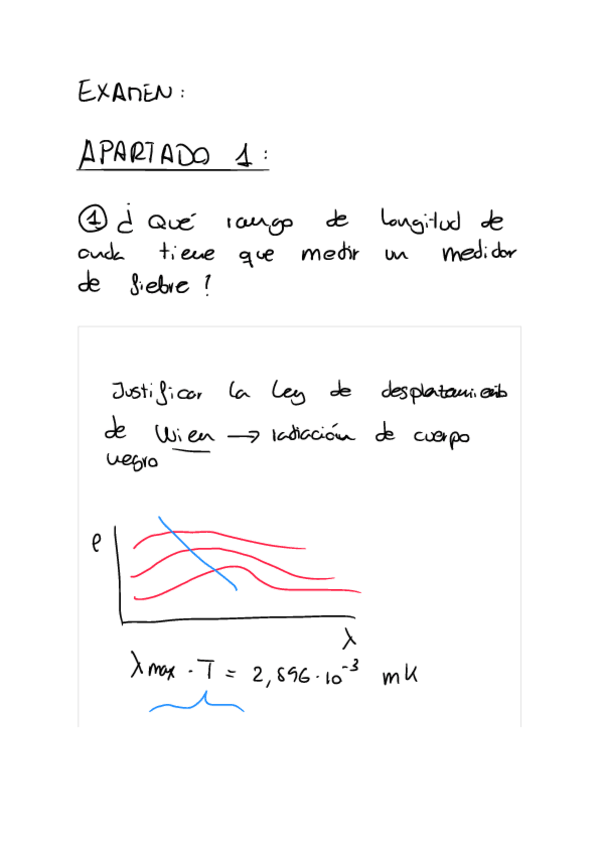 EXAMEN:
APARTADO 1:
① ¿Qué rango de longitud de
onda tiene que medir un medidor
de fiebre?
Justificar la Ley de desplazamiento
de Wien → radiación de cuerpo
negro
e
λ
λmax · T = 2,896·10⁻³ mK